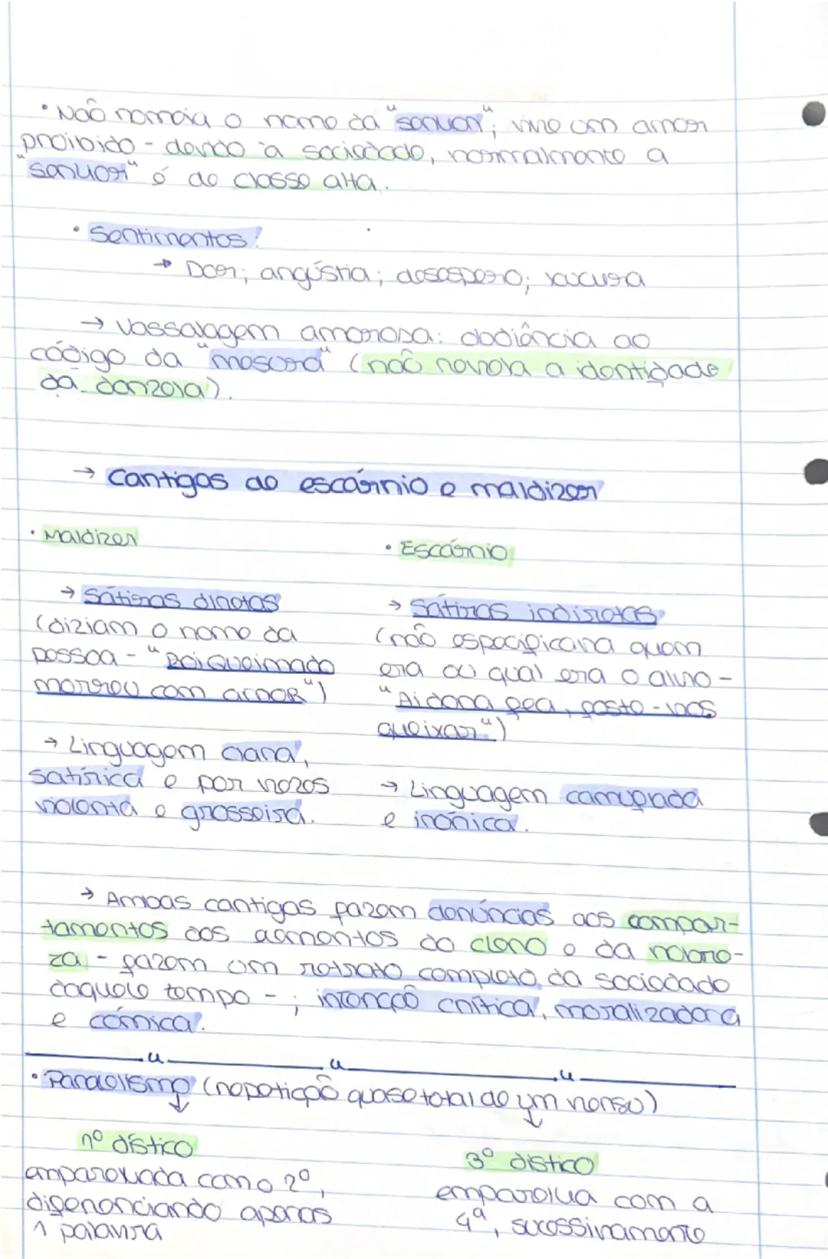 • Não nomeia o nome da "senhor"; vive um amor
proibido - devido à sociedade, normalmente a
"senhor" é de classe alta.
• Sentimentos:
→ Dor; angústia; desespero; loucura
→ Vassalagem amorosa: obdiência ao
código da "mesura" (não revela a identidade
da donzela).
→ Cantigas de escárnio e maldizer
• Maldizer
→ Sátiras diretas
(diziam o nome da
pessoa - "Roi queimado
morreu com amor")
→ Linguagem clara,
satírica e por vezes
violenta e grosseira.
• Escárnio
→ Sátiras indiretas
(não especificava quem
era ou qual era o alvo -
"Ai dona fea, foste-vos
queixar")
→ Linguagem camuflada
e irónica.
→ Ambas cantigas fazem denúncias aos compor-
tamentos dos elementos do clero e da nobre-
za - fazem um retrato completo da sociedade
daquele tempo - ; intenção crítica, moralizadora
e cómica.
• Paralelismo (repetição quase total de um verso)
1º dístico
emparelhada com o 2º,
diferenciando apenas
1 palavra
3º dístico
emparelha com a
4ª, sucessivamente